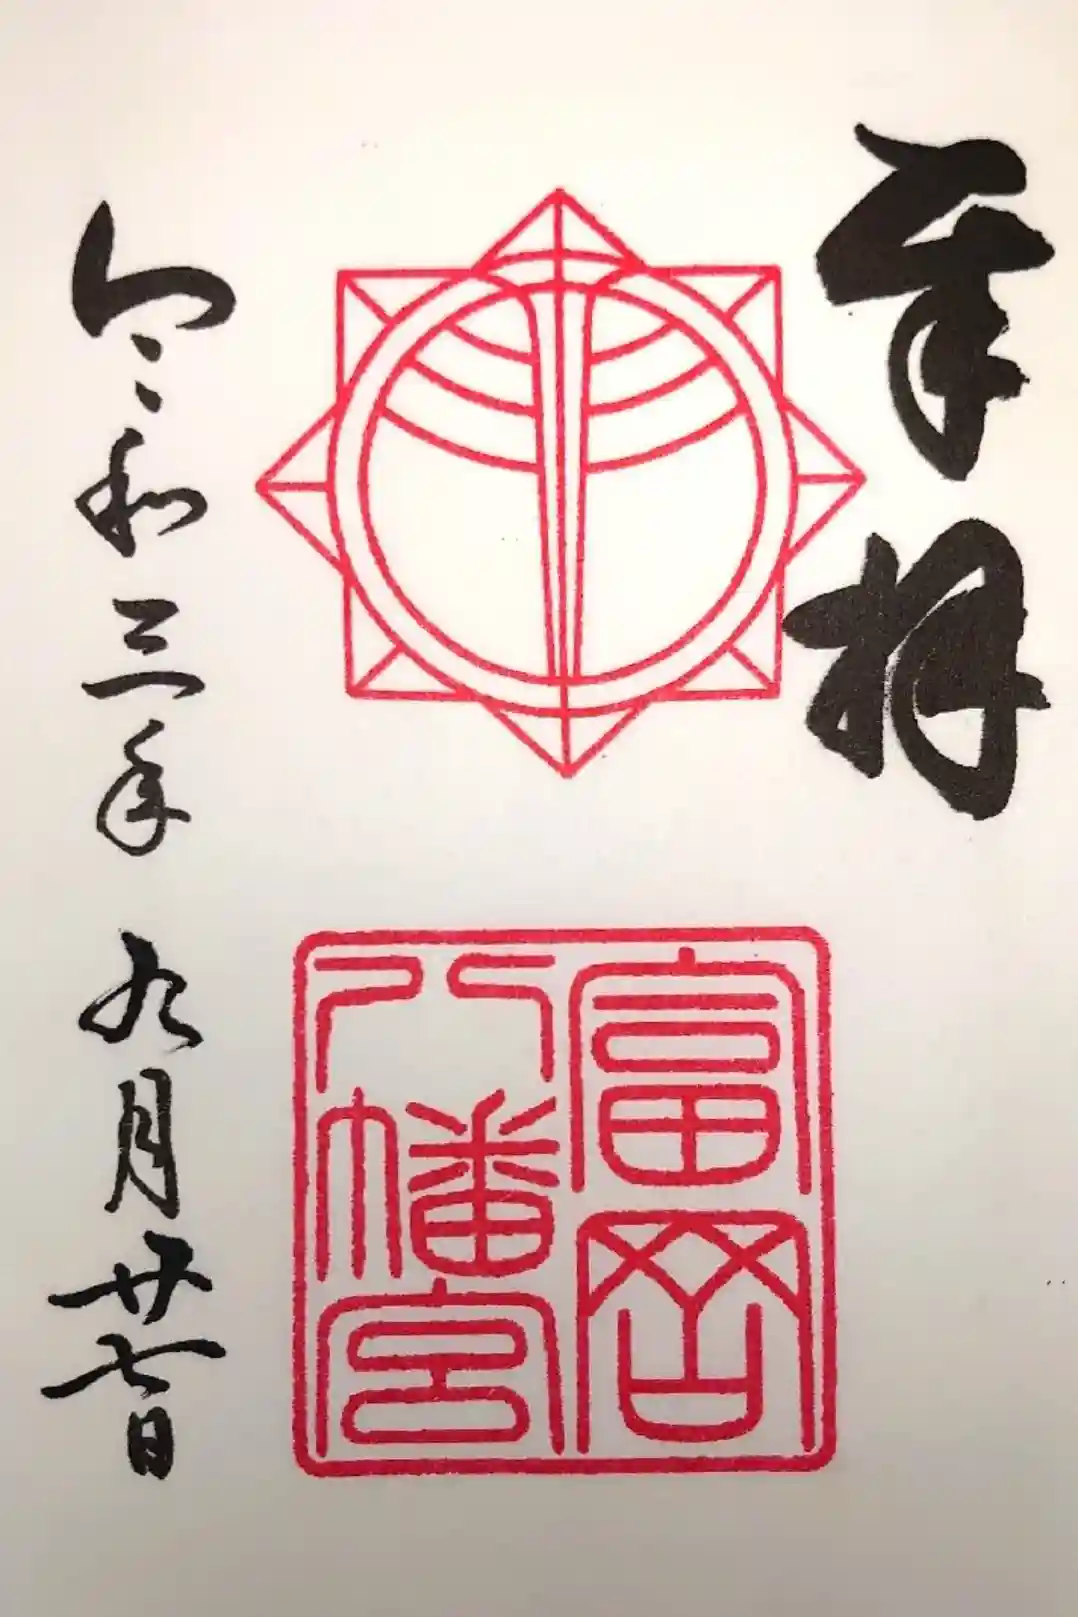 奉拝
富岡
八幡宮
令和三年 九月廿七日